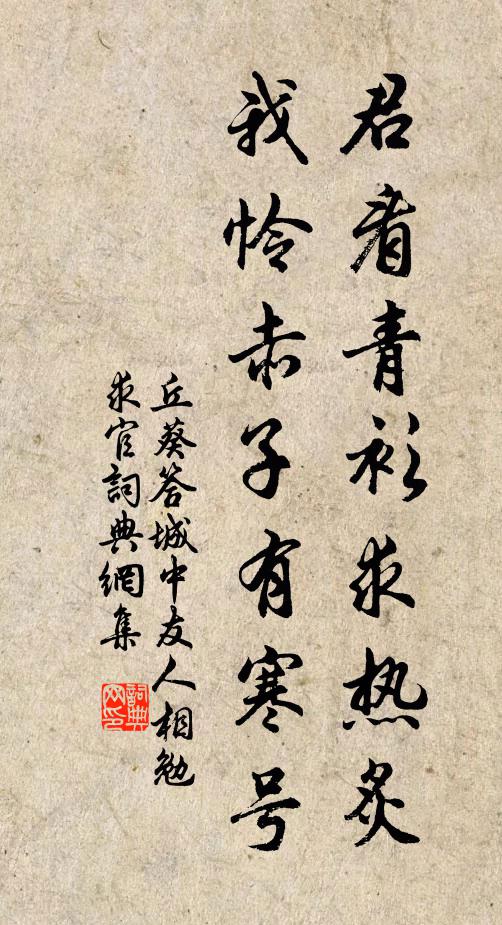 君看青衫求热炙
我怜赤子有寒号
丘葵答城中友人相勉
求官詞典網集
詞典网印